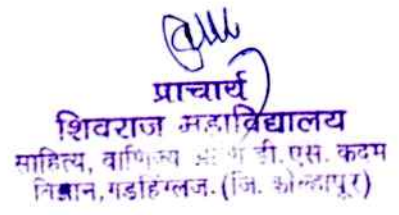 प्राचार्य
शिवराज महाविद्यालय
साहित्य, वाणिज्य डी.एस. कदम
विज्ञान, गडहिंग्लज. (जि. कोल्हापूर)